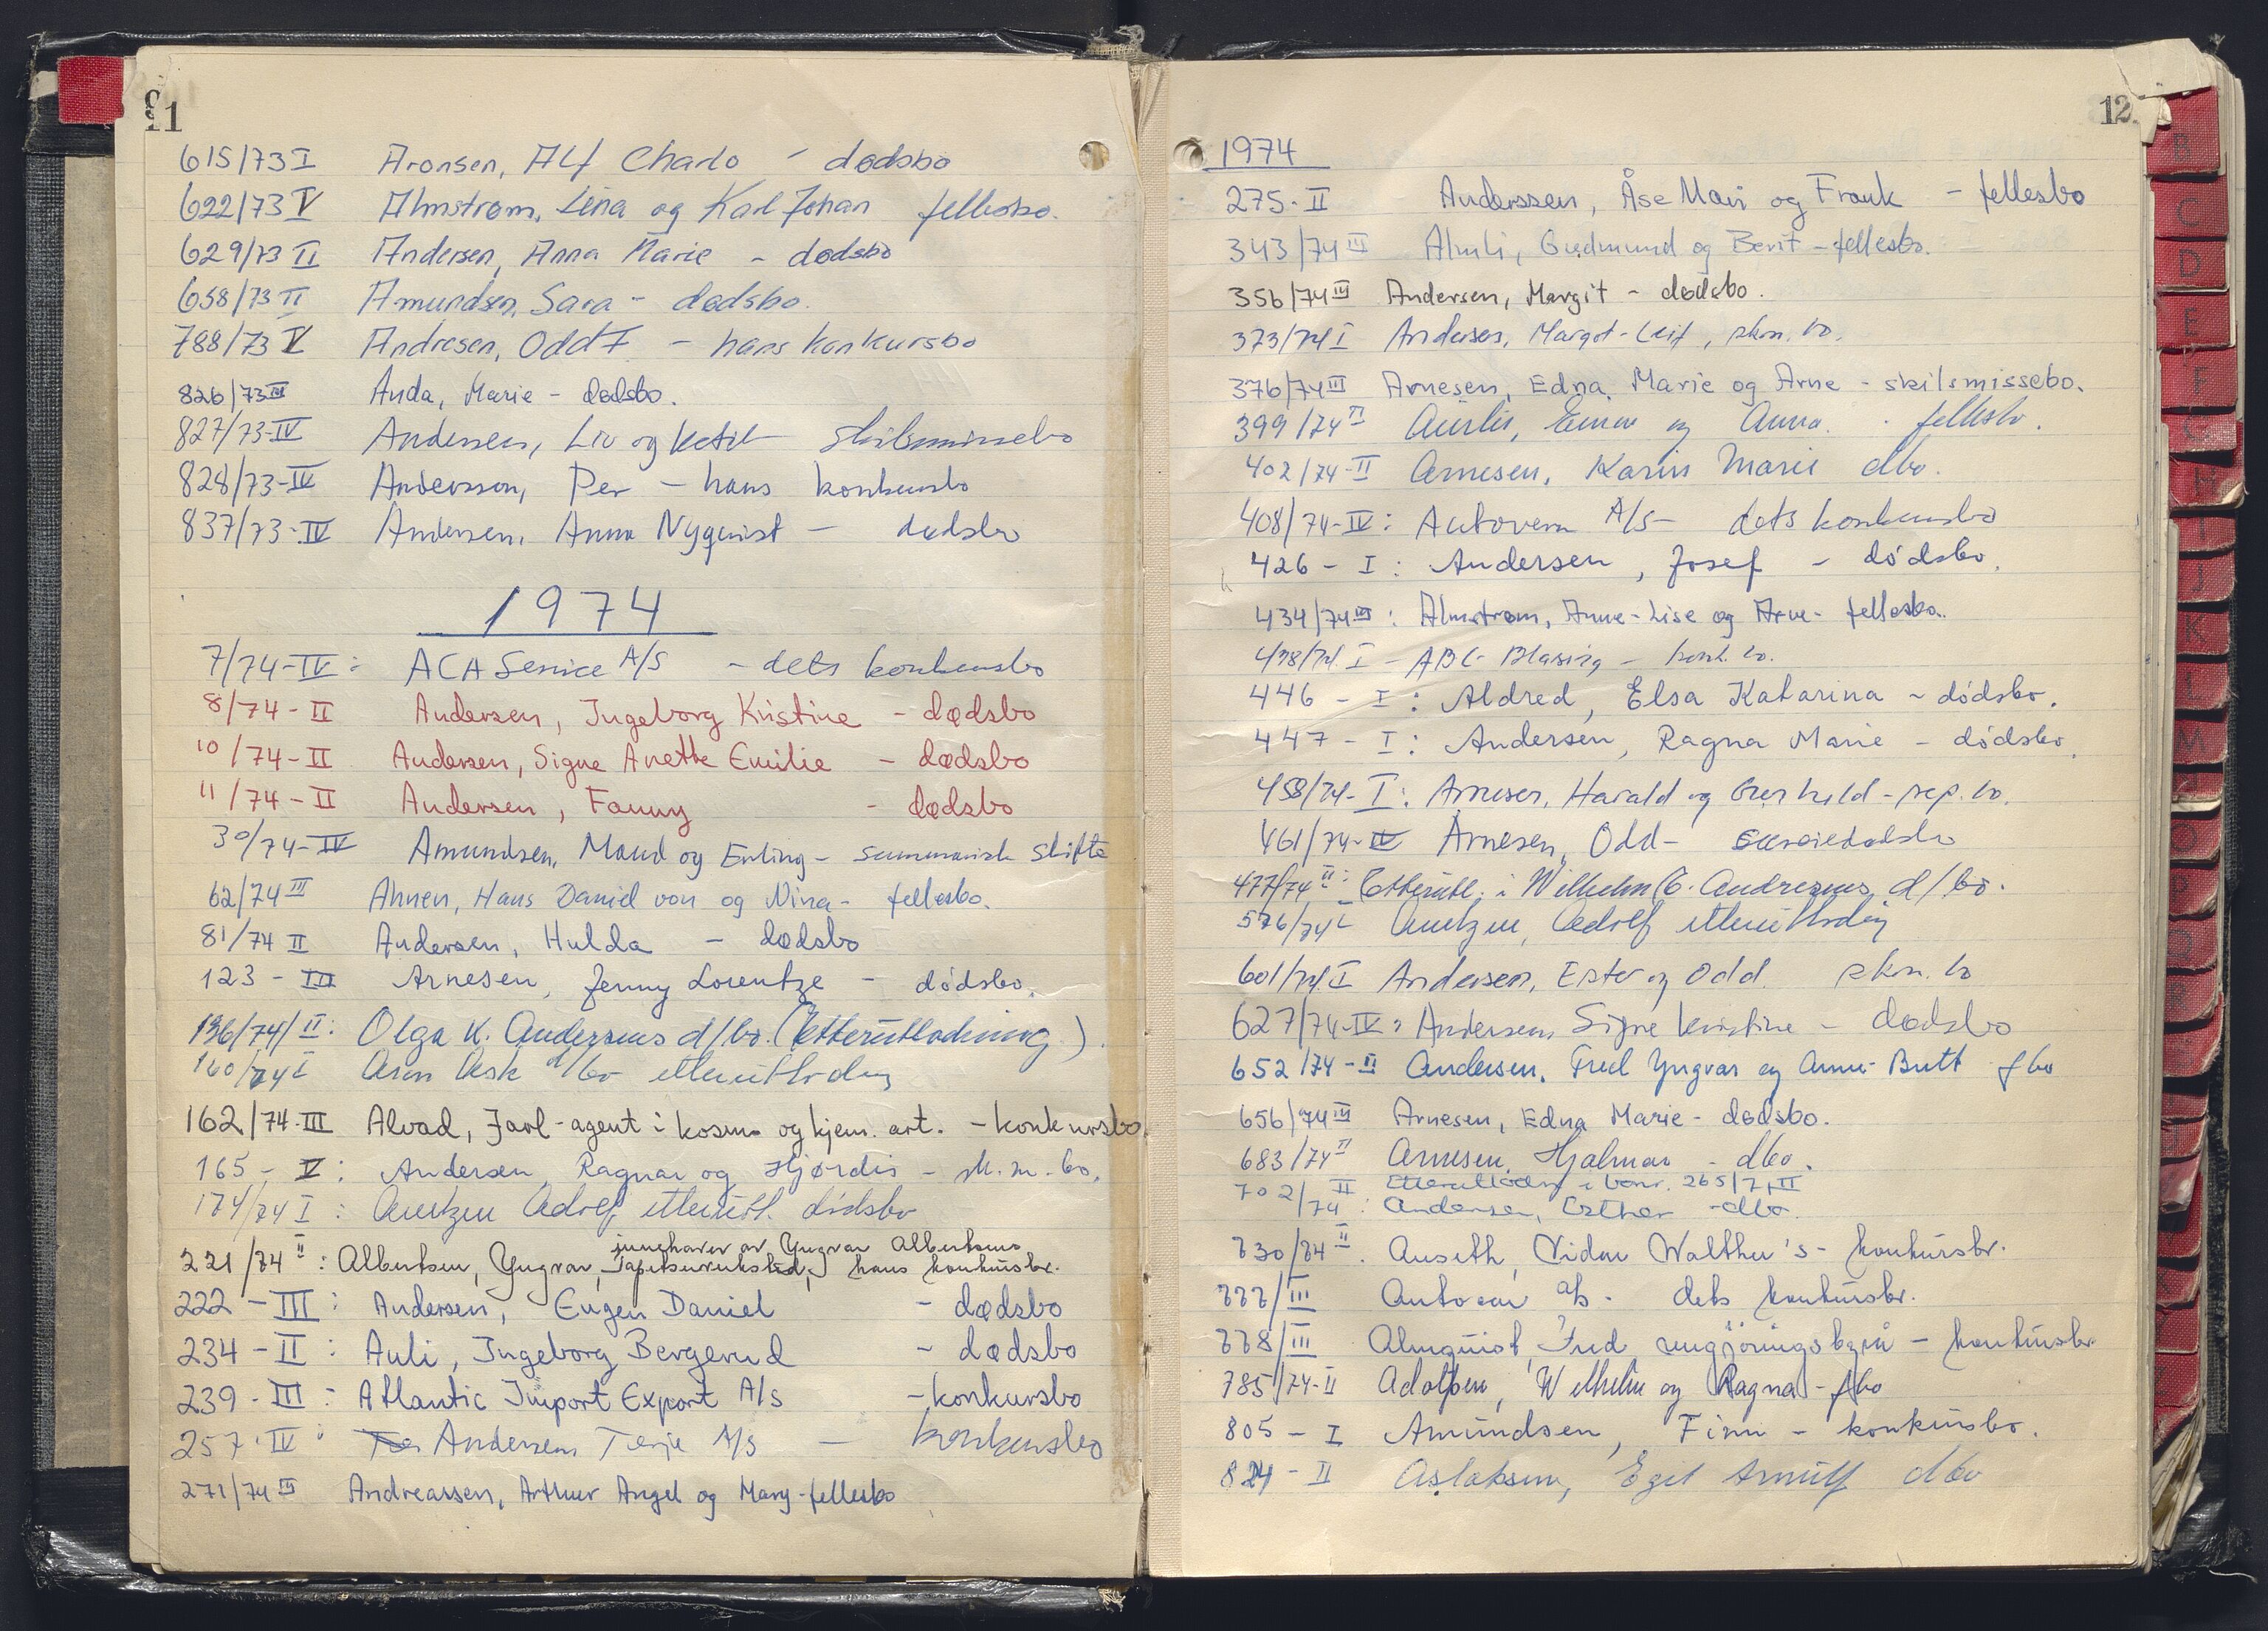 11
615/73 I Aronsen, Alf Charlo - dødsbo
622/73 V Almstrøm, Lina og Karl Johan fellesbo.
629/73 II Andersen, Anna Marie - dødsbo
658/73 II Amundsen, Sara - dødsbo.
788/73 V Andresen, Odd F - hans konkursbo
826/73 III Anda, Marie - dødsbo.
827/73-IV Andersen, Liv og Ketil skilsmissebo
828/73-IV Andersson, Per - hans konkursbo
837/73-IV Andersen, Anna Nyquist - dødsbo
1974
7/74-IV: ACA Service A/S - dets konkursbo
8/74-II Andersen, Ingeborg Kristine - dødsbo
10/74-II Andersen, Signe Anette Emilie - dødsbo
11/74-II Andersen, Fanny - dødsbo
30/74-IV Amundsen, Maud og Erling - summarisk skifte
62/74 III Ahnen, Hans Daniel von og Nina - fellesbo.
81/74 II Andersen, Hulda - dødsbo
123-III Arnesen, Jenny Lorentze - dødsbo.
136/74/II: Olga K. Anderssens d/bo. (Etterutlodning).
160/74 I Aron Ask d/bo etterutlodn
162/74-III Alvad, Jarl - agent i kosm. og kjem. art. - konkursbo
165 - V: Andersen, Ragnar og Hjørdis - sk.m.bo.
174/74 I: Arntzen Adolf etterutl. dødsbo
innehaver av Yngvar Albertsens
221/74 II: Albertsen, Yngvar, Tapetserverksted, hans konkursbo.
222-III: Andersen, Eugen Daniel - dødsbo
234-II: Auli, Ingeborg Bergerud - dødsbo
239-III: Atlantic Import Export A/S - konkursbo
257-IV: Andersen Terje A/S - konkursbo
271/74 III Andreassen, Arthur Angel og Mary - fellesbo
12.
1974
275-II Anderssen, Åse Mari og Frank - fellesbo
343/74 III Almli, Gudmund og Berit - fellesbo.
356/74 III Andersen, Margit - dødsbo.
373/74 I Andersen, Margot - Leif, skm. bo.
376/74 III Arnesen, Edna Marie og Arne - skilsmissebo.
399/74 II Aurlis, Einar og Anna. - fellesbo.
402/74-II Arnesen, Karin Marie dbo.
408/74-IV: Autovern A/S - dets konkursbo
426 - I: Andersen, Josef - dødsbo.
434/74 III: Almstrøm, Anne-Lise og Arve - fellesbo.
438/74. I - ABC Blåsing - konk. bo.
446 - I: Aldred, Elsa Katarina - dødsbo.
447 - I: Andersen, Ragna Marie - dødsbo.
458/74-I: Arnesen, Harald og Gunhild - sep. bo.
461/74-IV Arnesen, Odd - særeiedødsbo
477/74 II: Etterutl. i Wilhelm C. Andresens d/bo.
576/74 I Arntzen, Adolf etterutlodn
601/74. I Andersen, Ester og Odd. skm. bo
627/74-IV: Andersen, Signe Kristine - dødsbo
652/74-II Andersen, Fred Yngvar og Anne-Britt fbo
656/74 III Arnesen, Edna Marie - dødsbo.
683/74 II Arnesen, Hjalmar - dbo.
702/74 II: Etterutlodn i bonr. 265/71 II
Andersen, Esther - dbo.
730/74 II. Auseth, Vidar Walther's - konkursbo.
777/III Autocar a/s - dets konkursbo.
778/III Almquist, Ind. rengjøringsbyrå - konkursbo
785/74-II Adolfsen, Wilhelm og Ragna - fbo
805 - I Amundsen, Finn - konkursbo.
824 - II Aslaksen, Egil Arnulf dbo
B
C
D
E
F
H
I
J
K
L
M
O
P
Q
R